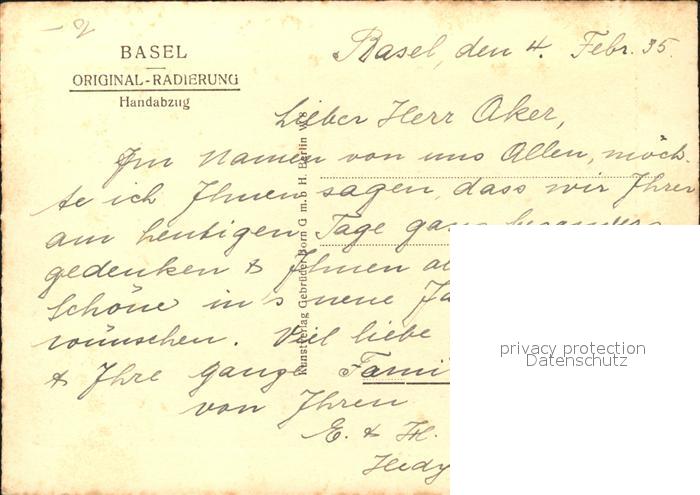 BASEL
ORIGINAL-RADIERUNG
Handabzug
Basel, den 4. Febr. 35.
Lieber Herr Aker,
Im Namen von uns Allen, möch-
te ich Ihnen sagen, dass wir Ihrer
am heutigen Tage ganz besonders
gedenken & Ihnen
Schöne in's neue
wünschen. Viel liebe
& Ihre ganze Fami
von Ihren
E. & H.
Hedy
Kunstverlag Gebrüder Born G.m.b.H. Berlin W 8
privacy protection
Datenschutz